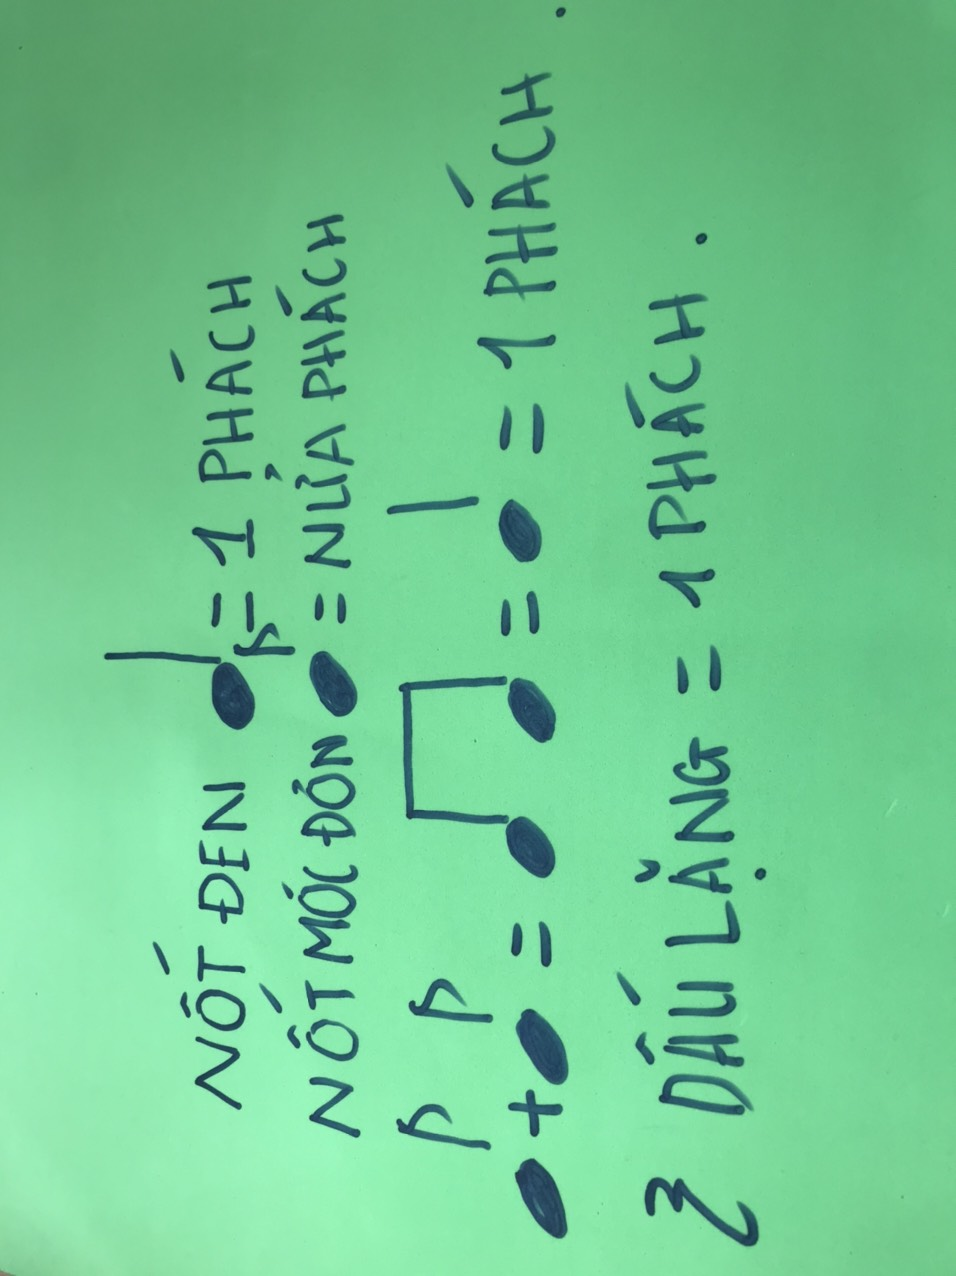 NỐT ĐEN ♩ = 1 PHÁCH
NỐT MÓC ĐƠN ♪ = NỬA PHÁCH
♪ + ♪ = ♫ = ♩ = 1 PHÁCH.
𝄽 DẤU LẶNG = 1 PHÁCH.